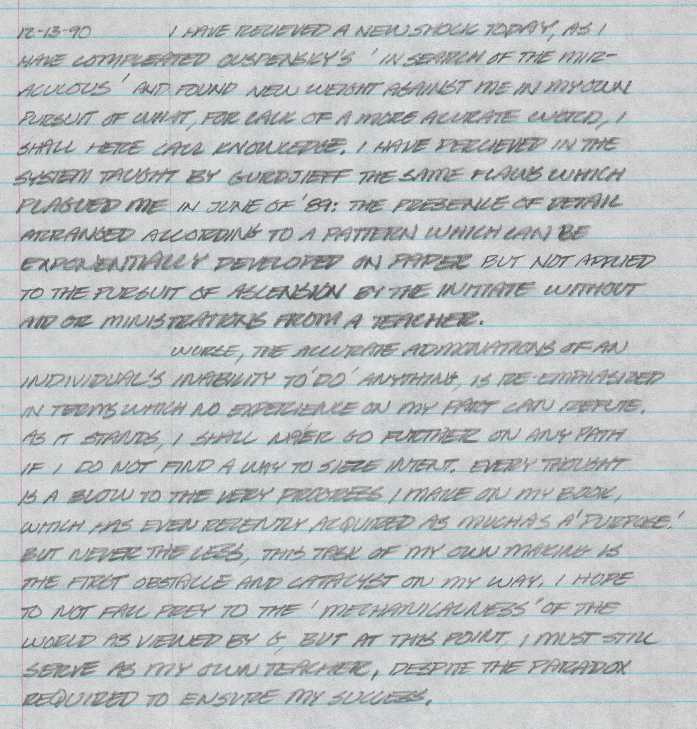 12-13-90 I HAVE RECIEVED A NEW SHOCK TODAY, AS I
HAVE COMPLEATED OUSPENSKY'S 'IN SEARCH OF THE MIR-
ACULOUS' AND FOUND NEW WEIGHT AGAINST ME IN MY OWN
PURSUIT OF WHAT, FOR LACK OF A MORE ACCURATE WORD, I
SHALL HERE CALL KNOWLEDGE. I HAVE PERCIEVED IN THE
SYSTEM TAUGHT BY GURDJIEFF THE SAME FLAWS WHICH
PLAGUED ME IN JUNE OF '89: THE PRESENCE OF DETAIL
ARRANGED ACCORDING TO A PATTERN WHICH CAN BE
EXPONENTIALLY DEVELOPED ON PAPER BUT NOT APPLIED
TO THE PURSUIT OF ASCENSION BY THE INITIATE WITHOUT
AID OR MINISTRATIONS FROM A TEACHER.
WORSE, THE ACCURATE ADMONATIONS OF AN
INDIVIDUAL'S INABILITY TO 'DO' ANYTHING, IS RE-EMPHASIZED
IN TERMS WHICH NO EXPERIENCE ON MY PART CAN REFUTE.
AS IT STANDS, I SHALL NE'ER GO FURTHER ON ANY PATH
IF I DO NOT FIND A WAY TO SIEZE INTENT. EVERY THOUGHT
IS A BLOW TO THE VERY PROGRESS I MAKE ON MY BOOK,
WHICH HAS EVEN RECENTLY ACQUIRED AS MUCH AS A 'PURPOSE.'
BUT NEVER THE LESS, THIS TASK OF MY OWN MAKING IS
THE FIRST OBSTACLE AND CATALYST ON MY WAY. I HOPE
TO NOT FALL PREY TO THE 'MECHANICALNESS' OF THE
WORLD AS VIEWED BY G, BUT AT THIS POINT, I MUST STILL
SERVE AS MY OWN TEACHER, DESPITE THE PARADOX
REQUIRED TO ENSURE MY SUCCESS.